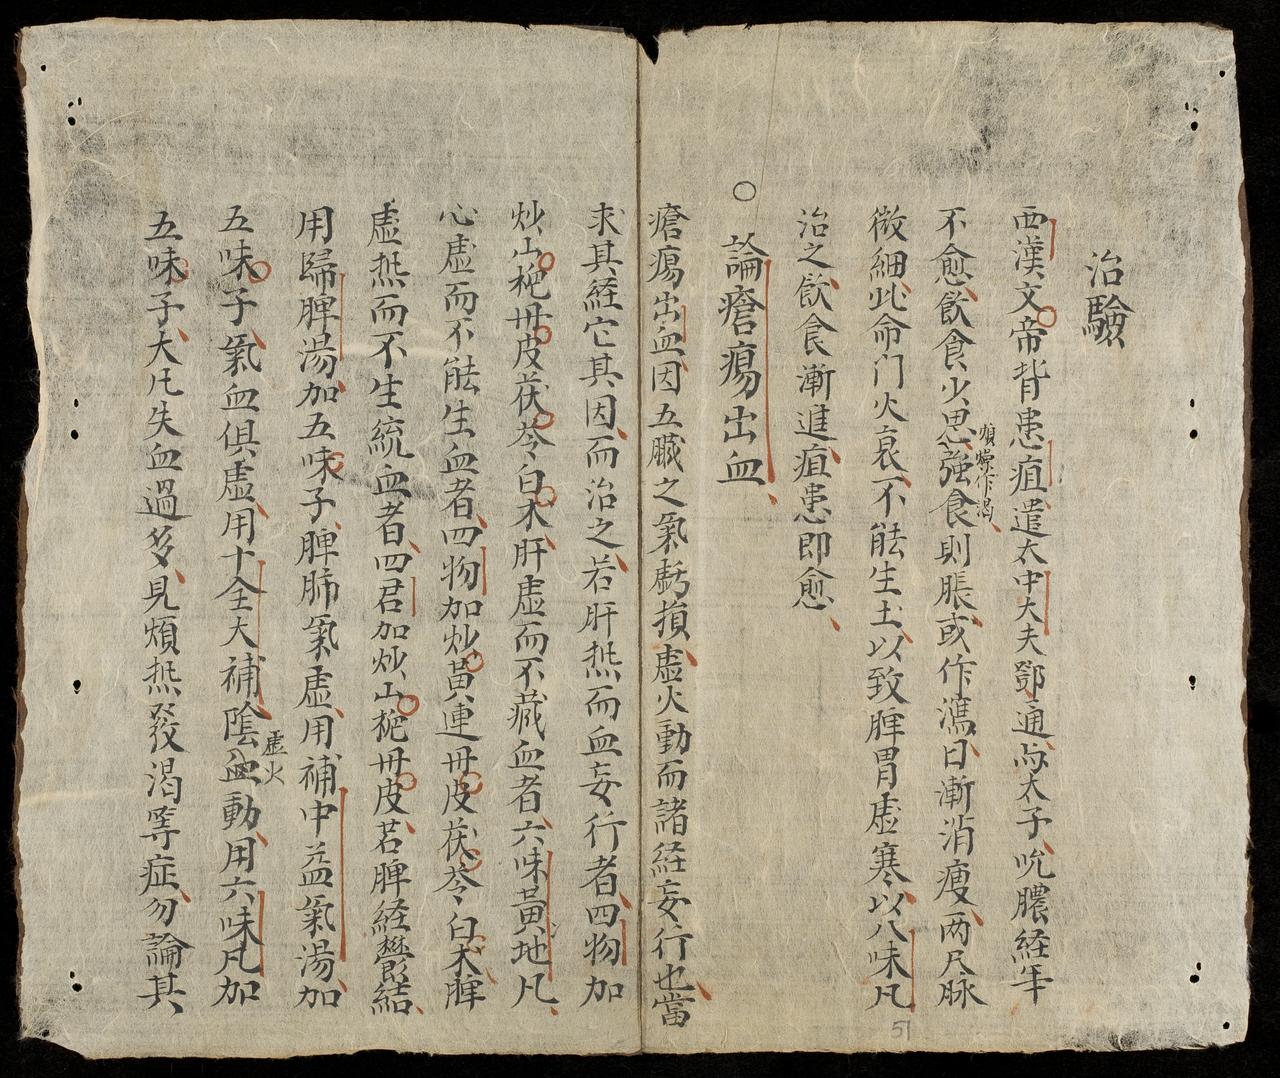 治驗
西漢文帝背患疽遣太中大夫鄧通与太子吮膿経年
不愈飲食少思煩燥作渴強食則脹或作瀉日漸消瘦两尺脉
微細此命门火衰不能生土以致脾胃虚寒以八味凡
治之飲食漸進疽患即愈
○論瘡瘍出血
瘡瘍出血因五臓之氣虧損虚火動而諸経妄行也當
求其経它其因而治之若肝𤍠而血妄行者四物加
炒山梔丹皮茯苓白术肝虚而不藏血者六味黃地凡
心虚而不能生血者四物加炒黃連丹皮茯苓白术脾
虚𤍠而不生統血者四君加炒山梔丹皮若脾経欝結
用歸脾湯加五味子脾肺氣虚用補中益氣湯加
五味子氣血俱虚用十全大補陰虚火血動用六味凡加
五味子大凡失血過多見煩𤍠發渴等症勿論其
51